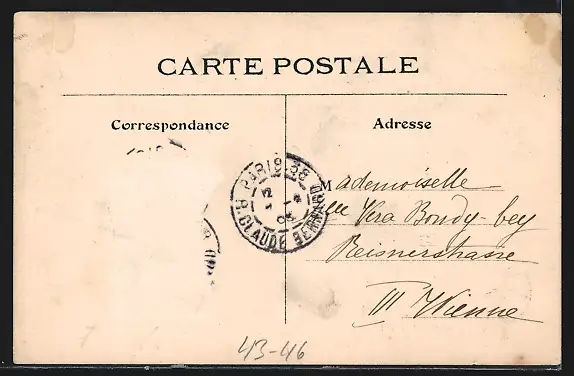 CARTE POSTALE
Correspondance
Adresse
PARIS 38
R. CLAUDE BERNARD
12
Mademoiselle
Mlle Vera Bondy-bey
Reisnerstrasse
III Wienne
43-46